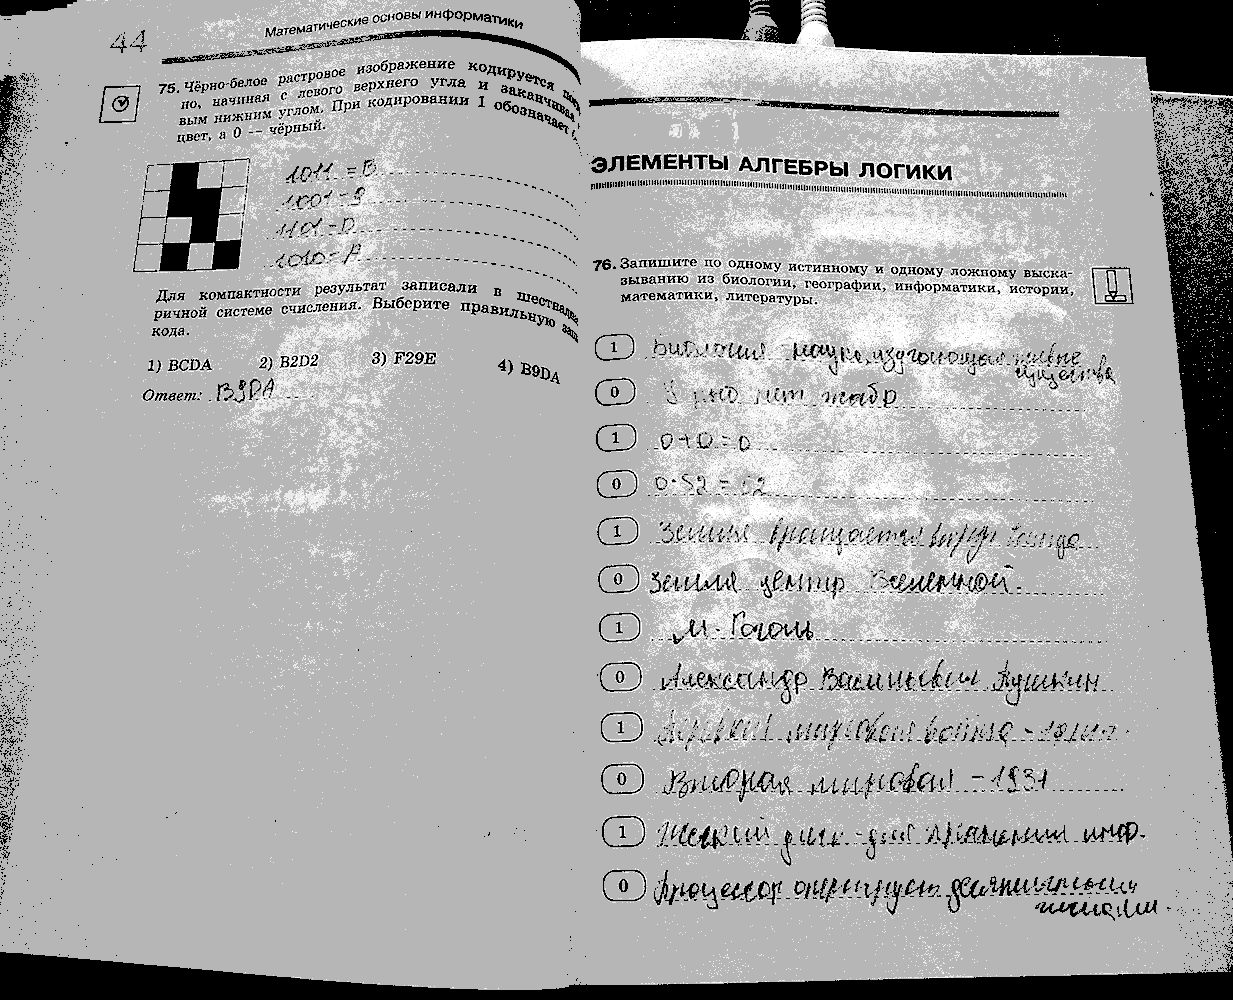 44
Математические основы информатики
75. Чёрно-белое растровое изображение кодируется
но, начиная с левого верхнего угла и заканчивая
вым нижним углом. При кодировании 1 обозначает
цвет, а 0 — чёрный.
1011 = B
1001 = 9
1101 = D
1010 = A
Для компактности результат записали в шестнадца
ричной системе счисления. Выберите правильную
кода.
1) BCDA 2) B2D2 3) F29E 4) B9DA
Ответ: B9DA
ЭЛЕМЕНТЫ АЛГЕБРЫ ЛОГИКИ
76. Запишите по одному истинному и одному ложному выска-
зыванию из биологии, географии, информатики, истории,
математики, литературы.
1 Биология наука, изучающая живые
существа
0 У рыб нет жабр
1 0+0=0
0 0·52 = 52
1 Земля вращается вокруг
0 Земля центр Вселенной.
1 Н. Гоголь
0 Александр Васильевич Пушкин
1 Первая мировая война -
0 Вторая мировая - 1931
1 Жесткий диск - для хранения инф.
0 Процессор оперирует десятичными
числами.